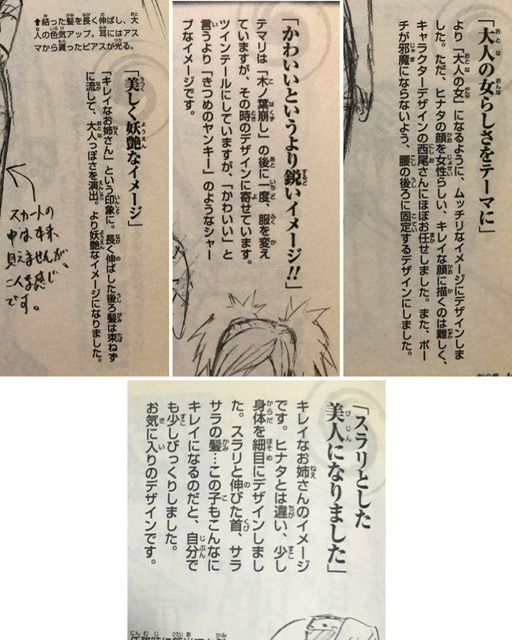 ↑結った髪を長く伸ばし、大
人の色気アップ。耳にはアス
マから貰ったピアスが光る。
「美しく妖艶なイメージ」
「キレイなお姉さん」という印象に。長く伸ばした後ろ髪は束ねず
に流して、大人っぽさを演出。より妖艶なイメージになりました。
スカートの
中は本来
見えませんが、
こんな感じ
です。
「かわいいというより鋭いイメージ!!」
テマリは「木ノ葉崩し」の後に一度、服を変え
ていますが、その時のデザインに寄せています。
ツインテールにしていますが、「かわいい」と
言うより「きつめのヤンキー」のようなシャー
プなイメージです。
「大人の女らしさをテーマに」
より「大人の女」になるように、ムッチリなイメージにデザインしま
した。ただ、ヒナタの顔を女性らしい、キレイな顔に描くのは難しく、
キャラクターデザインの西尾さんにほぼお任せしました。また、ポー
チが邪魔にならないよう、腰の後ろに固定するデザインにしました。
「スラリとした
美人になりました」
キレイなお姉さんのイメージ
です。ヒナタとは違い、少し
身体を細目にデザインしまし
た。スラリと伸びた首、サラ
サラの髪…この子もこんなに
キレイになるのだと、自分で
も少しびっくりしました。
お気に入りのデザインです。